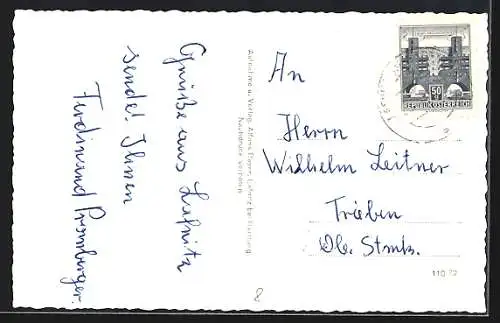 Grüße aus Lafnitz
sendet Ihnen
Ferdinand Promberger.
Aufnahme u. Verlag
Nachdruck verboten
An
Herrn
Wilhelm Leitner
Trieben
Ob. Stmk.
50
REPUBLIK ÖSTERREICH
110 72
8